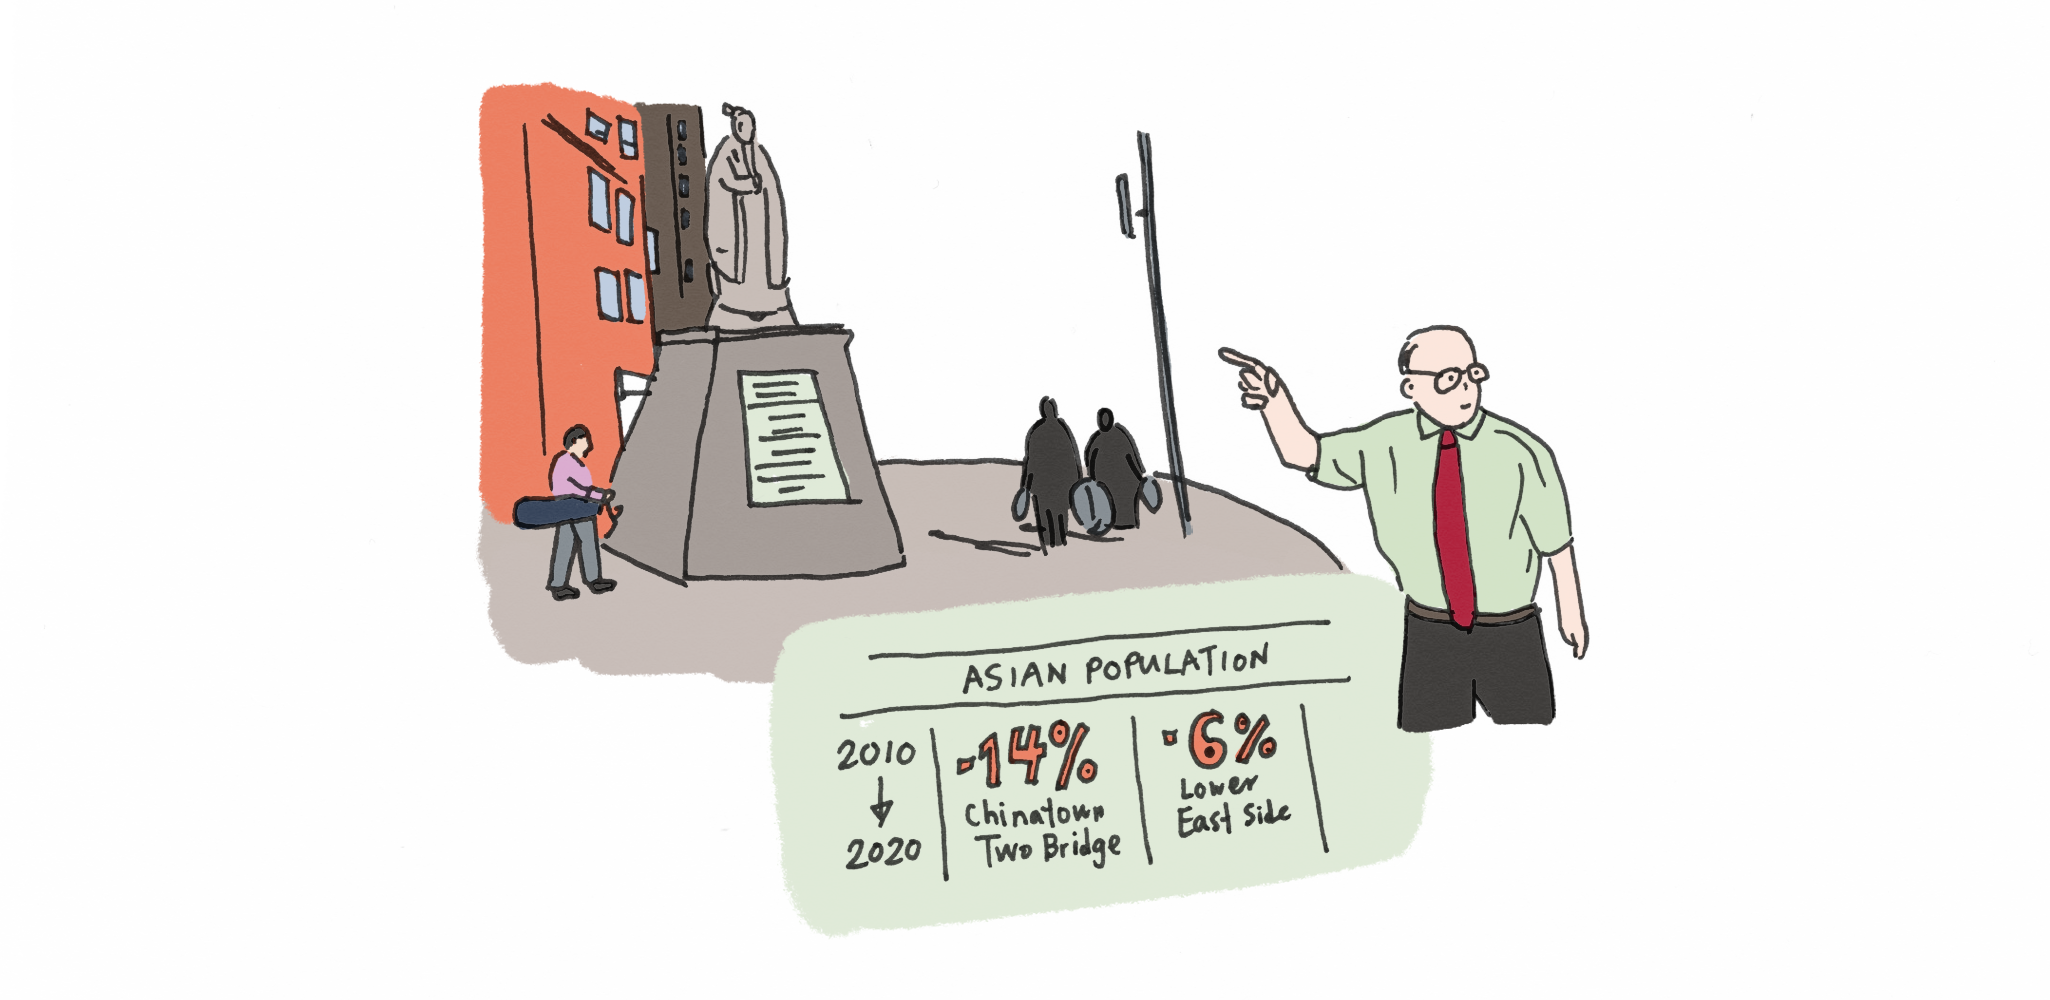 ASIAN POPULATION
2010
2020
-14%
Chinatown
Two Bridge
-6%
Lower
East Side